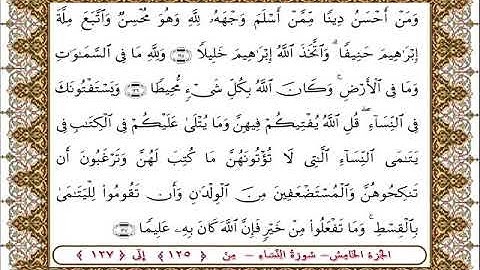 وَمَنْ أَحْسَنُ دِينًا مِّمَّنْ أَسْلَمَ وَجْهَهُۥ لِلَّهِ وَهُوَ مُحْسِنٌ وَٱتَّبَعَ مِلَّةَ
إِبْرَٰهِيمَ حَنِيفًا ۗ وَٱتَّخَذَ ٱللَّهُ إِبْرَٰهِيمَ خَلِيلًا ﴿١٢٥﴾ وَلِلَّهِ مَا فِى ٱلسَّمَٰوَٰتِ
وَمَا فِى ٱلْأَرْضِ ۚ وَكَانَ ٱللَّهُ بِكُلِّ شَىْءٍ مُّحِيطًا ﴿١٢٦﴾ وَيَسْتَفْتُونَكَ
فِى ٱلنِّسَآءِ ۖ قُلِ ٱللَّهُ يُفْتِيكُمْ فِيهِنَّ وَمَا يُتْلَىٰ عَلَيْكُمْ فِى ٱلْكِتَٰبِ فِى
يَتَٰمَى ٱلنِّسَآءِ ٱلَّٰتِى لَا تُؤْتُونَهُنَّ مَا كُتِبَ لَهُنَّ وَتَرْغَبُونَ أَن
تَنكِحُوهُنَّ وَٱلْمُسْتَضْعَفِينَ مِنَ ٱلْوِلْدَٰنِ وَأَن تَقُومُوا۟ لِلْيَتَٰمَىٰ
بِٱلْقِسْطِ ۚ وَمَا تَفْعَلُوا۟ مِنْ خَيْرٍ فَإِنَّ ٱللَّهَ كَانَ بِهِۦ عَلِيمًا ﴿١٢٧﴾
الجزء الخامس - سورة النساء - من ﴿ ١٢٥ ﴾ إلى ﴿ ١٢٧ ﴾